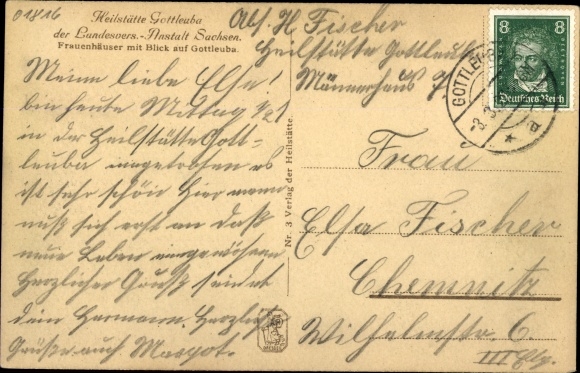 01816
Heilstätte Gottleuba
der Landesvers.-Anstalt Sachsen.
Frauenhäuser mit Blick auf Gottleuba.
Abs. H. Fischer
Heilstätte Gottleuba
Männerhaus 7
8 8
Deutsches Reich
GOTTLEUB
Meine liebe Else!
bin heute Mittag 1/2 1
in der Heilstätte Gott-
leuba eingetroffen es
ist sehr schön hier man
muß sich erst an daß
neue Leben eingewöhnen
Herzlicher Gruß sendet
dein Hermann. Herzliche
Grüße auch Margot.
Nr. 3 Verlag der Heilstätte.
Frau
Elsa Fischer
Chemnitz
Wilhelmstr. 6
III Etg.